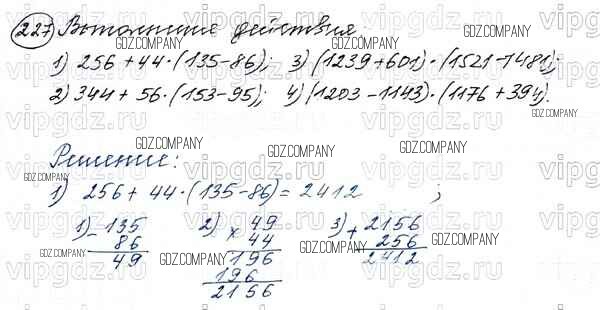 227 Выполните действия
1) 256 + 44 · (135 - 86); 3) (1239 + 601) · (1521 - 1481);
2) 344 + 56 · (153 - 95); 4) (1203 - 1143) · (1176 + 394).
Решение:
1) 256 + 44 · (135 - 86) = 2412 ;
1) - 135 2) × 49 3) + 2156
86 44 256
49 196 2412
196
2156
vipgdz.ru
GDZ.COMPANY